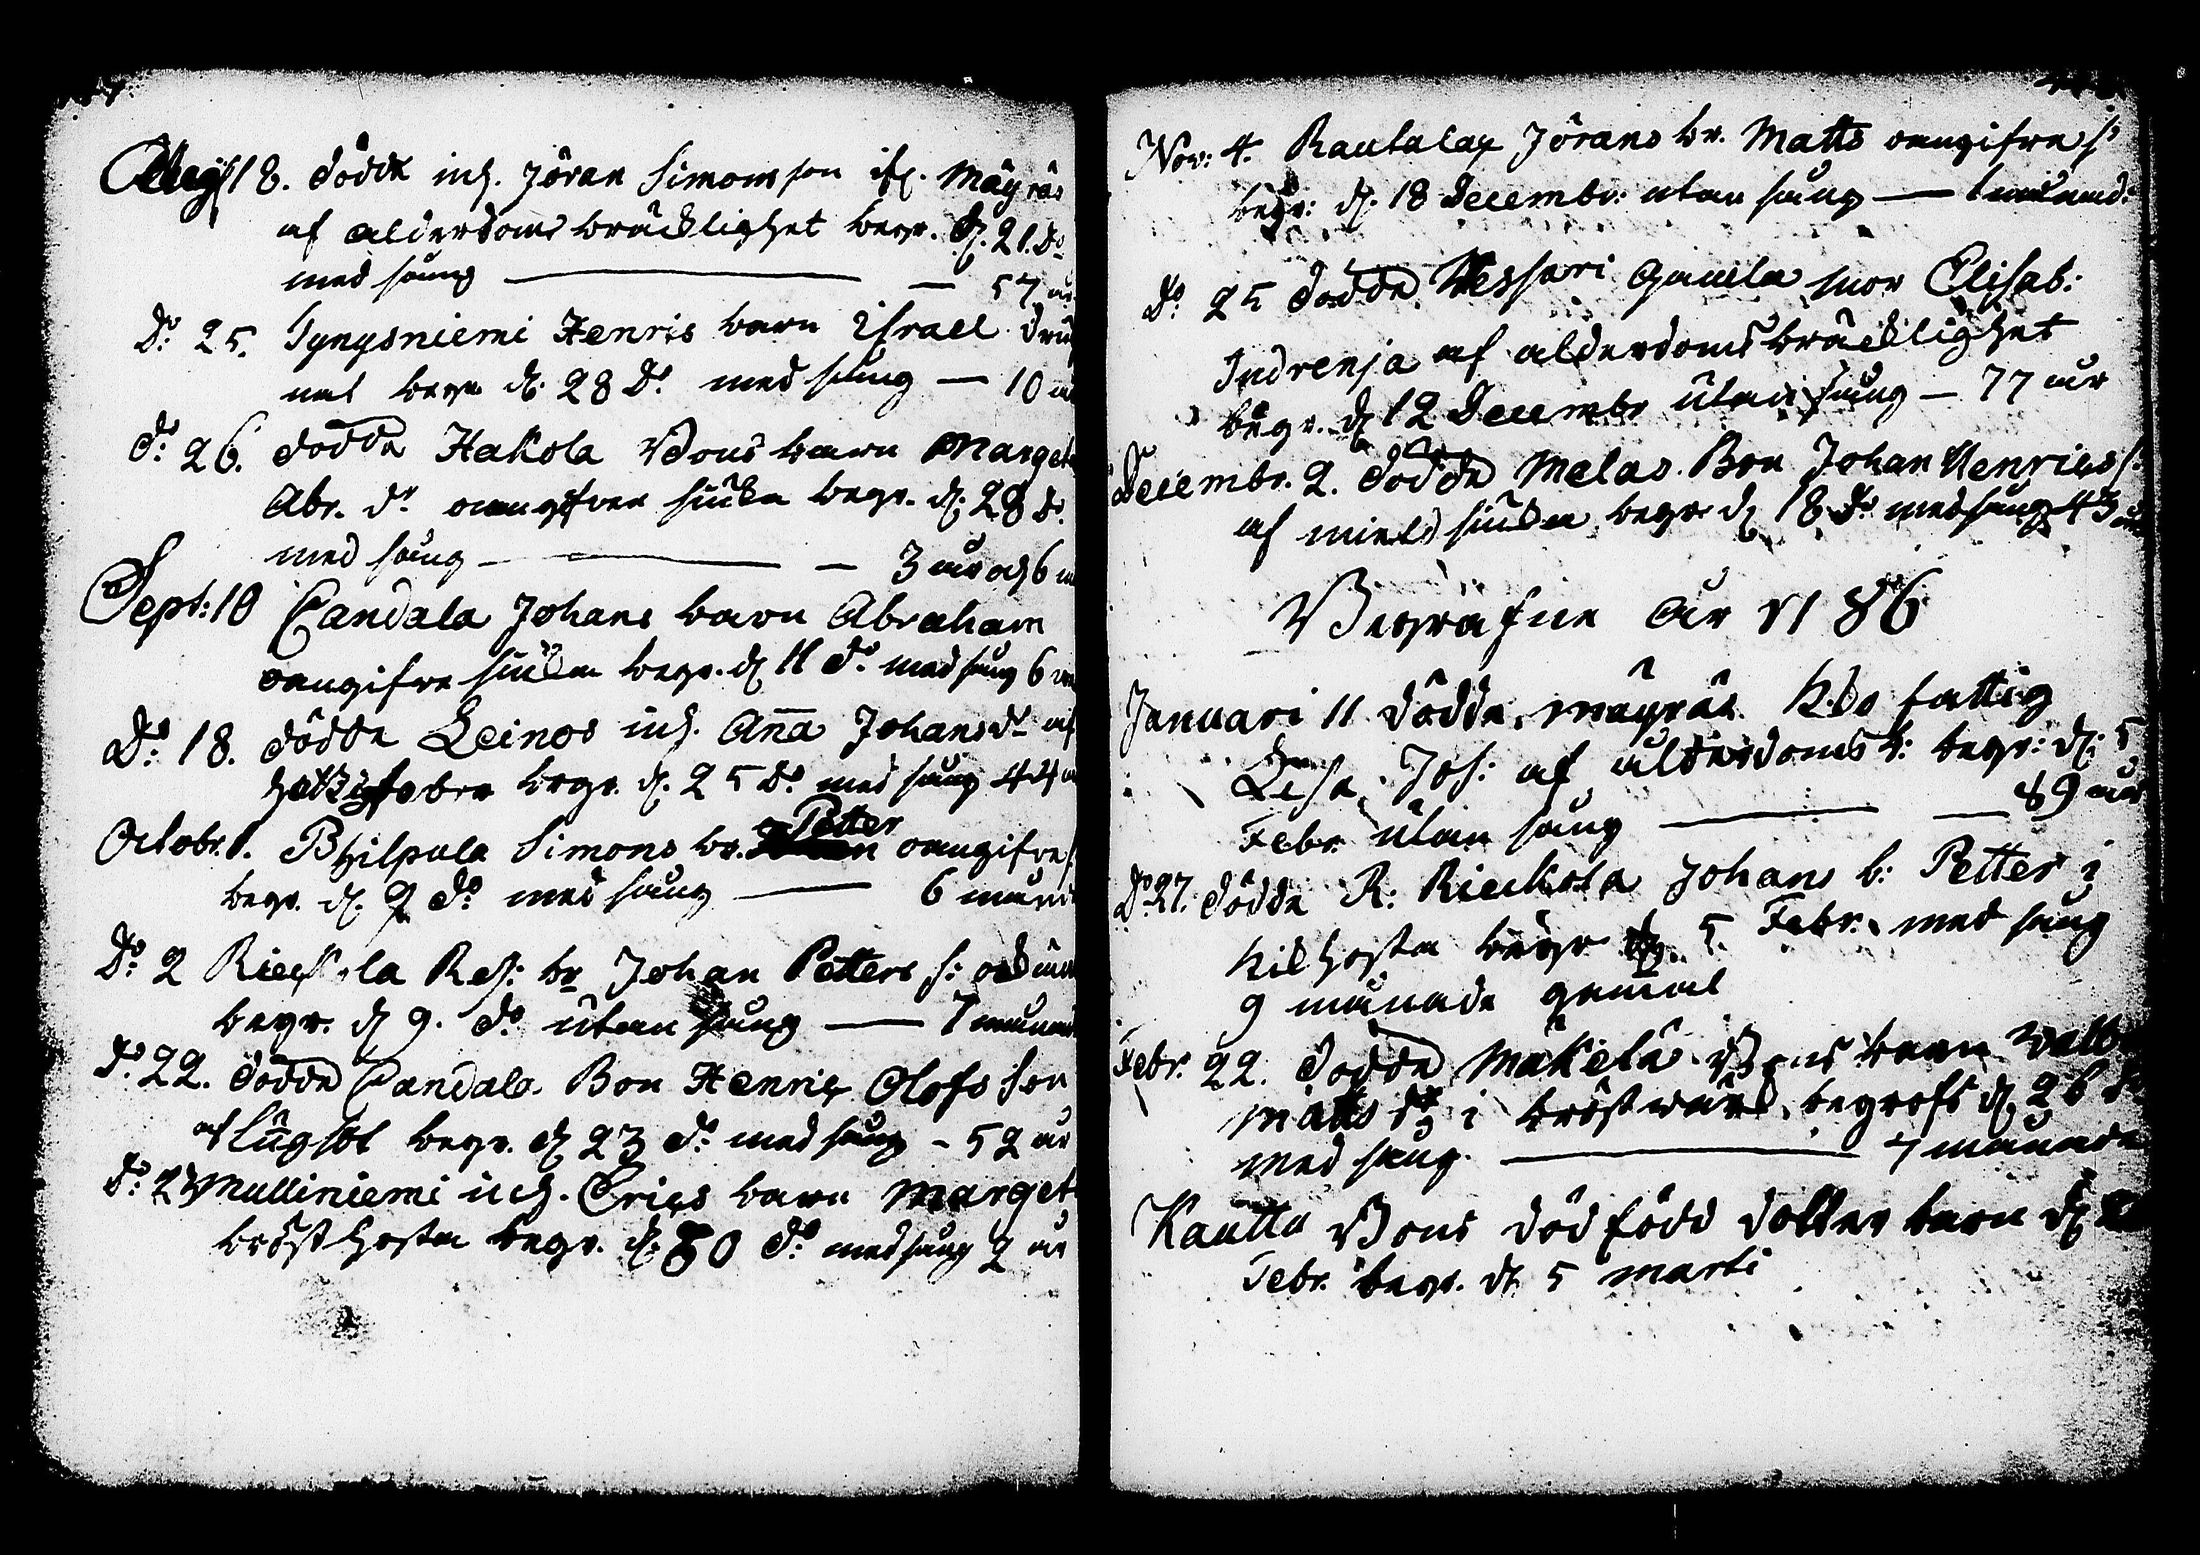 Aug: 18. dödde inh. Jöran Simonson ifr. Mäyräs
af ålderdoms bräcklighet begr. d. 21. do
med sång — — 57 år
do 25. Tynysniemi Henrics barn Israel
begr. d. 28 do med sång — 10 år
do 26. dödde Hakola Bons barn Marget
Abr. dr oangifven siuka begr. d. 28 do
med sång — — 3 år och 6 m
Sept: 10 Candala Johans barn Abraham
oangifven siuka begr. d 11 do med sång 6
do 18. dödde Leinos inh. Aña Johansdr af
hetzig feber begr. d. 25 do med sång 44
Octobr. 1. Philpula Simons br. Petter oangifven s
begr. d. 9 do med sång — 6 månad
do 2 Rieckola Ref: br Johan Petters s:
begr. d 9. do utan sång — 7 månad
do 22. dödde Candala Bon Henric Olofsson
af lugsot begr. d 23 do med sång – 52 år
do 2 Mulliniemi inh. Erics barn Marget
bröst hosta begr. d. 30 do med sång 2 år
Nov: 4. Rautalax Jörans br. Matts oangifven s:
begr: d. 18 Decembr: utan sång — 1 månad:
do 25 dödde Vessari gamla mor Elisab:
Indrenja af ålderdoms bräcklighet
begr. d 12 Decembr utan sång – 77 år
Decembr. 2. dödde Melas Bon Johan Henrics s:
af siuka begr d 18 do med sång 43 år
Begrafne år 1786
Januari 11 dödde, mäyräs fattig
Lisa Joh: af ålderdoms b: begr: d: 5
Febr. utan sång — — 89 år
do 27. dödde R: Rieckola Johans b: Petter i
kikhosta begr d. 5 Febr. med sång
9 månade gam̄al
Febr. 22. dödde Mäkelä Bons barn Valb
Matts dr i bröstwärk, begrofs d 26 do
med sång — 7 månade
Kautto Bons död född dotter barn d
Febr. begr. d. 5 marti